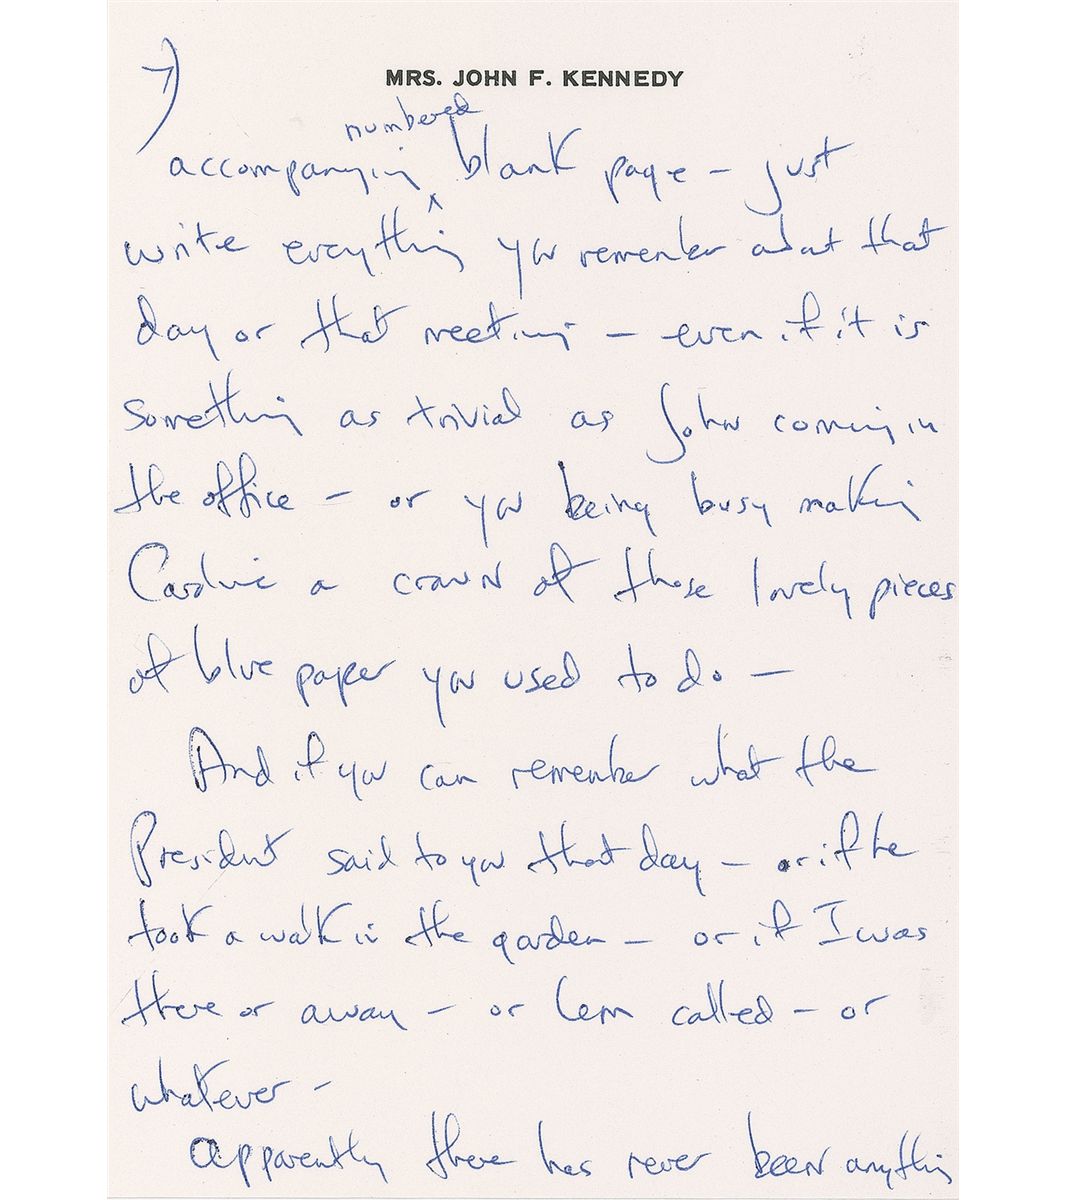 MRS. JOHN F. KENNEDY
numbered
accompanying blank page - just
write everything you remember about that
day or that meeting - even if it is
something as trivial as John coming in
the office - or you being busy making
Caroline a crown of those lovely pieces
of blue paper you used to do -
And if you can remember what the
President said to you that day - or if he
took a walk in the garden - or if I was
there or away - or Lem called - or
whatever -
Apparently there has never been anything